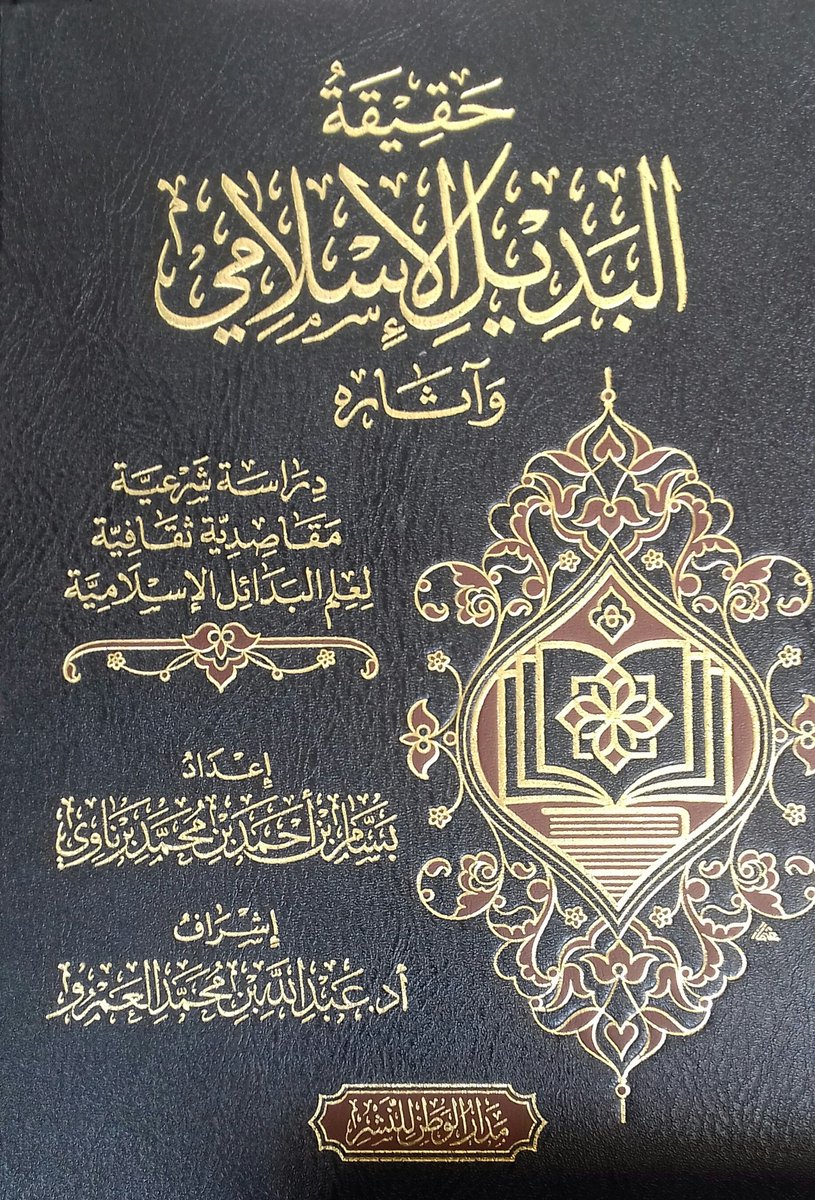 حَقِيْقَةُ
البَدِيْلِ الإِسْلَامِي
وَآثَاره
دِرَاسَة شَرْعِيَّة
مَقَاصِدِيَّة ثقَافِيَّة
لِعِلمِ البَدَائل الإِسْلَامِيَّة
إِعْدَادُ
بَسَّام بْن أَحْمَد بْنِ مُحَمَّد بَرنَاوِي
إِشْرَافُ
أ.د. عَبْد اللَّه بْنِ مُحَمَّد العَمْرو
مَدَارُ الوَطَنِ لِلنَّشْر